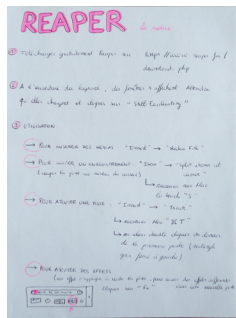 REAPER la notice
① Télécharger gratuitement Reaper sur https://www.reaper.fm/
download.php
② A l'ouverture du logiciel, des fenêtres s'affichent. Attendre
qu'elles chargent et cliquer sur "Still Evaluating"
③ UTILISATION
→ POUR INSÉRER DES MÉDIAS : "Insert" → "Media File"
→ POUR COUPER UN ENREGISTREMENT : "Item" → "split items at
(couper la piste au niveau du curseur) cursor"
↳ raccourci sur Mac
la touche "S"
→ POUR AJOUTER UNE PISTE : "Insert" → "Track"
↳ raccourci Mac "⌘ T"
↳ ou alors double cliquer en dessous
de la première piste (rectangle
gris foncé à gauche)
→ POUR AJOUTER DES EFFETS
(un effet s'applique à toute la piste, pour avoir des effets différents
cliquer sur "Fx" créer une nouvelle piste